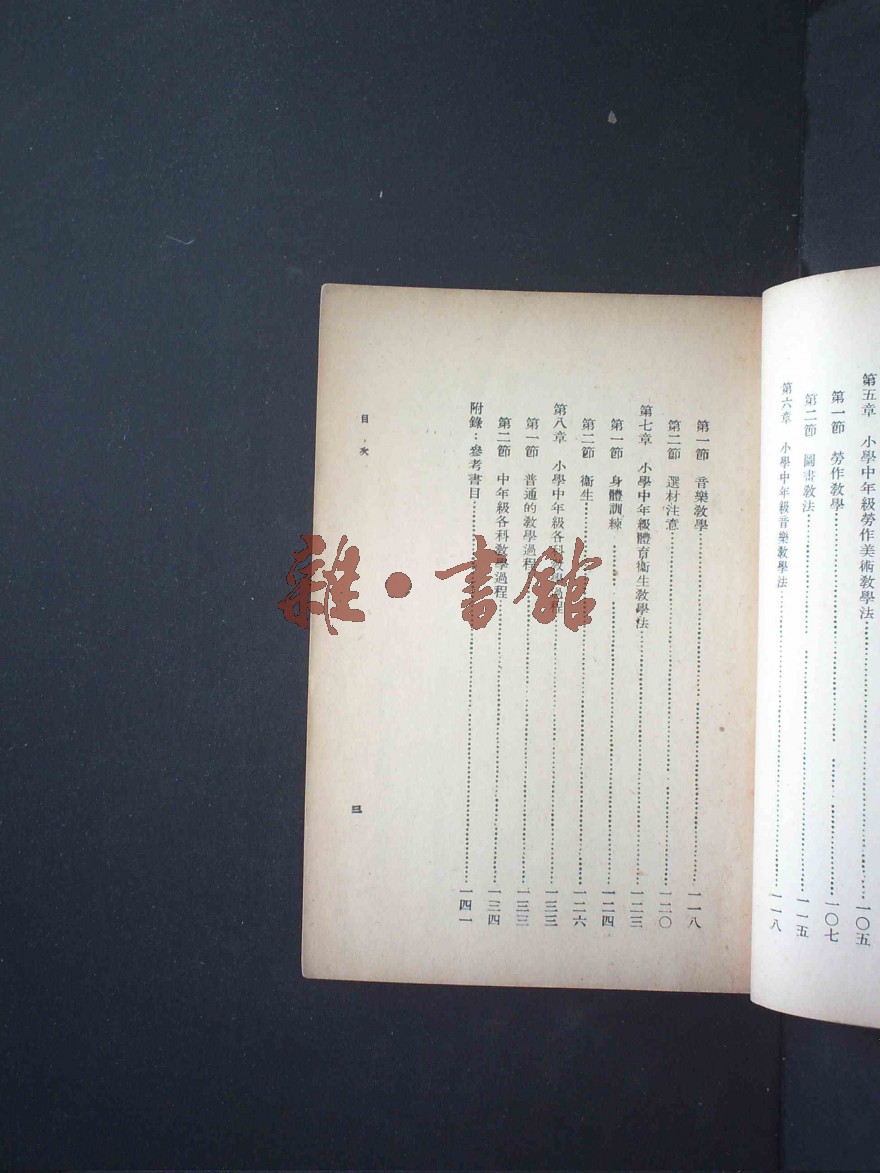 第五章 小學中年級勞作美術教學法……一〇五
第一節 勞作教學……一〇七
第二節 圖畫教法……一一五
第六章 小學中年級音樂教學法……一一八
第一節 音樂教學……一一八
第二節 選材注意……一二〇
第七章 小學中年級體育衛生教學法……一二三
第一節 身體訓練……一二四
第二節 衛生……一二六
第八章 小學中年級各科教學過程……一三三
第一節 普通的教學過程……一三三
第二節 中年級各科教學過程……一三四
附錄：參考書目……一四一
目次
三
雜·書館